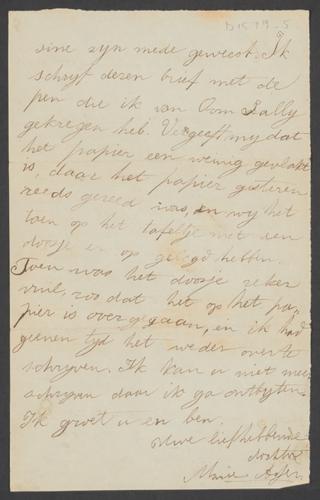 D1579-5
sine zyn mede geweest. Ik
schryf dezen brief met de
pen die ik van Oom Sally
gekregen heb. Vergeeft my dat
het papier een weinig gevlakt
is, daar het papier gisteren
reeds gereed was, en wy het
toen op het tafeltje met een
doosje er op gelegd hebben.
Toen was het doosje zeker
vuil, zoo dat het op het pa„
pier is overgegaan, en ik had
geenen tyd het weder over te
schryven. Ik kan u niet meer
schryven daar ik ga ontbyten.
Ik groet u en ben.
Uwe liefhebbende
dochter